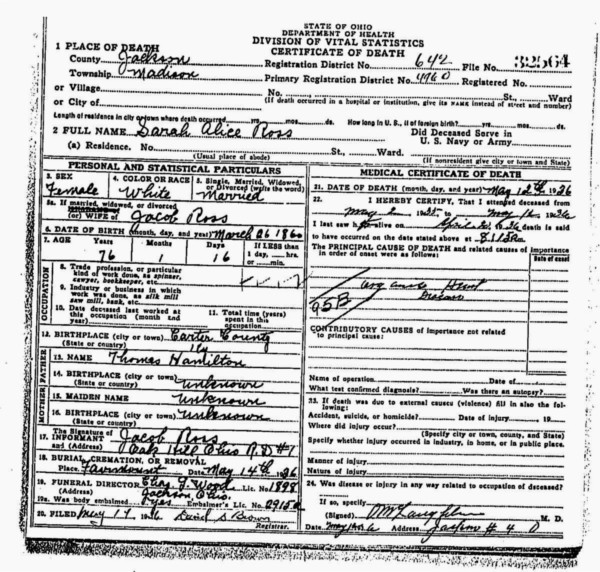 STATE OF OHIO
DEPARTMENT OF HEALTH
DIVISION OF VITAL STATISTICS
CERTIFICATE OF DEATH
1 PLACE OF DEATH
County Jackson Registration District No. 642 File No. 32564
Township Madison Primary Registration District No. 4960 Registered No.
or Village No. St., Ward
or City of (If death occurred in a hospital or institution, give its NAME instead of street and number)
Length of residence in city or town where death occurred yrs. mos. ds. How long in U. S., if of foreign birth? yrs. mos. ds.
2 FULL NAME Sarah Alice Ross Did Deceased Serve in U. S. Navy or Army
(a) Residence. No. St., Ward.
(Usual place of abode) (If nonresident give city or town and State)
PERSONAL AND STATISTICAL PARTICULARS
3. SEX Female 4. COLOR OR RACE White 5. Single, Married, Widowed, or Divorced (write the word) Married
5a. If married, widowed, or divorced
(or) WIFE of Jacob Ross
6. DATE OF BIRTH (month, day, and year) March 26 1860
7. AGE Years 76 Months 1 Days 16 If LESS than 1 day, hrs. or min.
OCCUPATION
8. Trade, profession, or particular kind of work done, as spinner, sawyer, bookkeeper, etc.
9. Industry or business in which work was done, as silk mill saw mill, bank, etc.
10. Date deceased last worked at this occupation (month and year)
11. Total time (years) spent in this occupation
12. BIRTHPLACE (city or town) Carter County
(State or country) Ky
FATHER
13. NAME Thomas Hamilton
14. BIRTHPLACE (city or town) Unknown
(State or country)
MOTHER
15. MAIDEN NAME Unknown
16. BIRTHPLACE (city or town) Unknown
(State or country)
17. The Signature of INFORMANT Jacob Ross
and (Address) Oak Hill Ohio R.D #1
18. BURIAL, CREMATION, OR REMOVAL
Place Fairmount Date May 14th 1936
19. FUNERAL DIRECTOR Elza J. Wood Lic. No. 1898
(Address) Jackson, Ohio.
19a. Was body embalmed Yes Embalmer's Lic. No. 2915
20. FILED May 17 1936 David S Brown
Registrar.
MEDICAL CERTIFICATE OF DEATH
21. DATE OF DEATH (month, day, and year) May 12th 1936
22. I HEREBY CERTIFY, That I attended deceased from
May
I last saw h alive on death is said
to have occurred on the date stated above at
THE PRINCIPAL CAUSE OF DEATH and related causes of importance in order of onset were as follows:
Date of onset
Organic Heart
95B
CONTRIBUTORY CAUSES of importance not related to principal cause:
Name of operation Date of
What test confirmed diagnosis? Was there an autopsy?
23. If death was due to external causes (violence) fill in also the following:
Accident, suicide, or homicide? Date of injury 19
Where did injury occur?
(Specify city or town, county, and State)
Specify whether injury occurred in industry, in home, or in public place.
Manner of injury
Nature of injury
24. Was disease or injury in any way related to occupation of deceased?
If so, specify
(Signed) M. D.
Date Address Jackson # 4 O